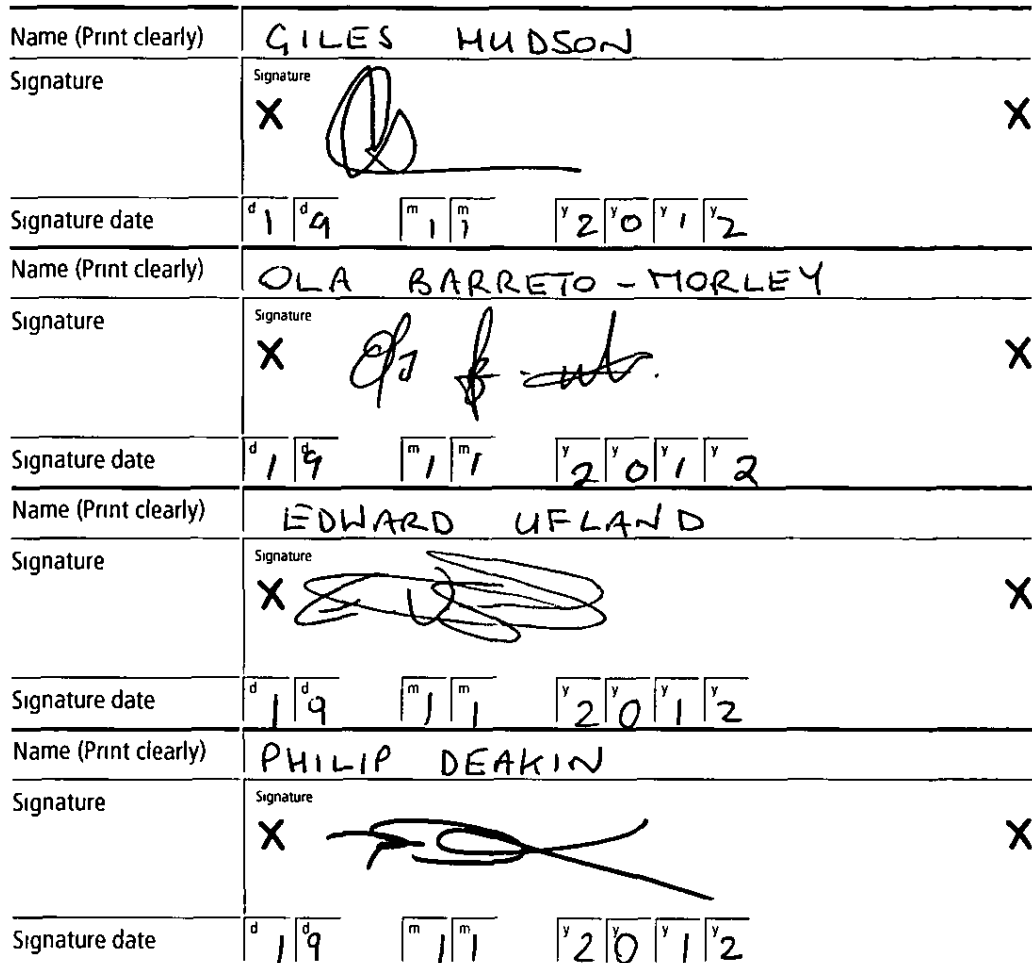 Name (Print clearly) GILES HUDSON
Signature Signature
X X
Signature date d1 d9 m1 m1 y2 y0 y1 y2
Name (Print clearly) OLA BARRETO - MORLEY
Signature Signature
X X
Signature date d1 d9 m1 m1 y2 y0 y1 y2
Name (Print clearly) EDWARD UFLAND
Signature Signature
X X
Signature date d1 d9 m1 m1 y2 y0 y1 y2
Name (Print clearly) PHILIP DEAKIN
Signature Signature
X X
Signature date d1 d9 m1 m1 y2 y0 y1 y2